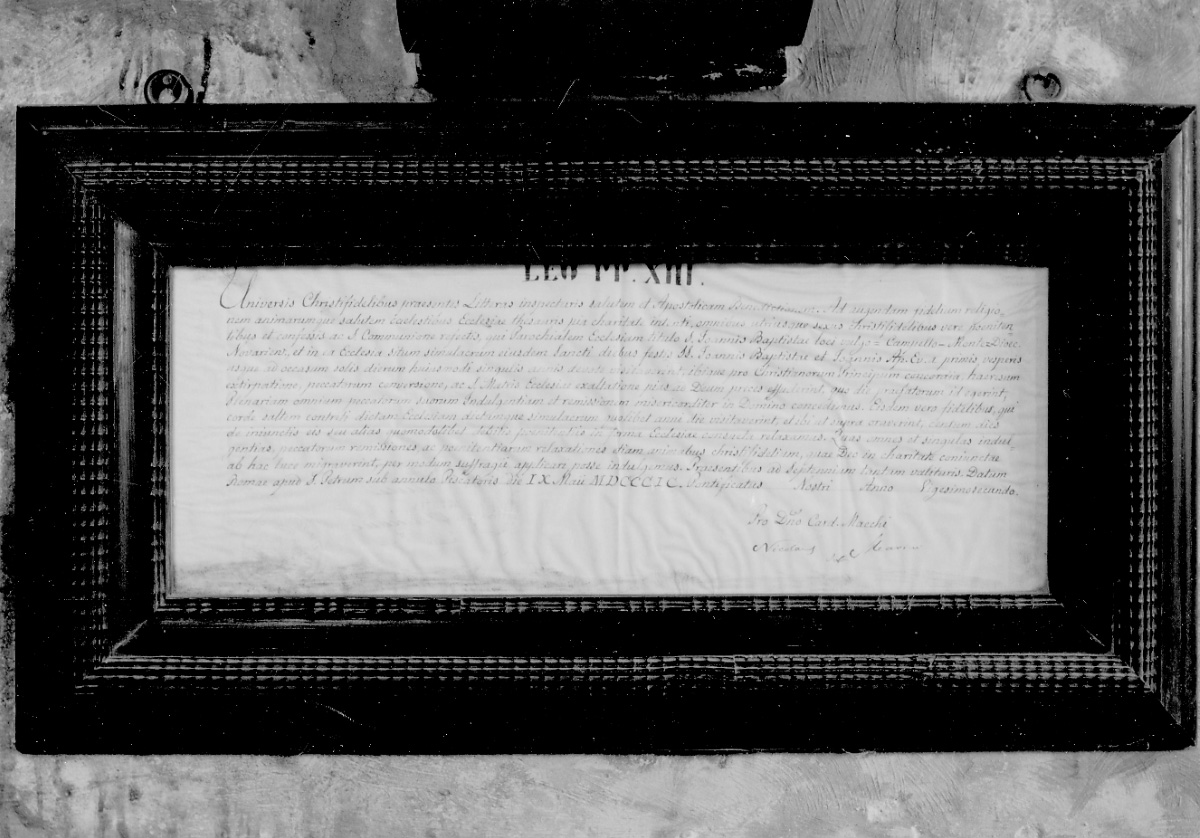 LEO PP. XIII.
Universis Christifidelibus praesentes Litteras inspecturis salutem et Apostolicam Benedictionem. Ad augendam fidelium religio,
nem animarumque salutem caelestibus Ecclesiae thesauris pia charitate intenti, omnibus utriusque sexus Christifidelibus vere poeniten
tibus et confessis ac S. Communione refectis, qui Parochialem Ecclesiam titulo S. Joannis Baptistae loci vulgo = Campello = Monti Dioec.
Novarien. et in ea Ecclesia situm simulacrum eiusdem Sancti duabus festis SS. Joannis Baptistae et Joannis Ap. Ev. a primis vesperis
usque ad occasum solis dierum huiusmodi singulis annis devote visitaverint, ibique pro Christianorum Principum concordia, haeresum
extirpatione, peccatorum conversione, ac S. Matris Ecclesiae exaltatione pias ad Deum preces effuderint, quo die praefatorum id egerint,
Plenariam omnium peccatorum suorum Indulgentiam et remissionem misericorditer in Domino concedimus. Eisdem vero fidelibus, qui
corde saltem contrito dictam Ecclesiam dictumque simulacrum quolibet anni die visitaverint, et ibi ut supra oraverint, centum dies
de iniunctis eis seu alias quomodolibet debitis poenitentiis in forma Ecclesiae consueta relaxamus. Quas omnes et singulas indul=
gentias, peccatorum remissiones ac poenitentiarum relaxationes etiam animabus christifidelium, quae Deo in charitate coniunctae
ab hac luce migraverint, per modum suffragii applicari posse indulgemus. Praesentibus ad Septennium tantum valituris. Datum
Romae apud S. Petrum sub annulo Piscatoris die IX Maii MDCCCIC. Pontificatus Nostri Anno Vigesimosecundo.
Pro Dno Card. Macchi